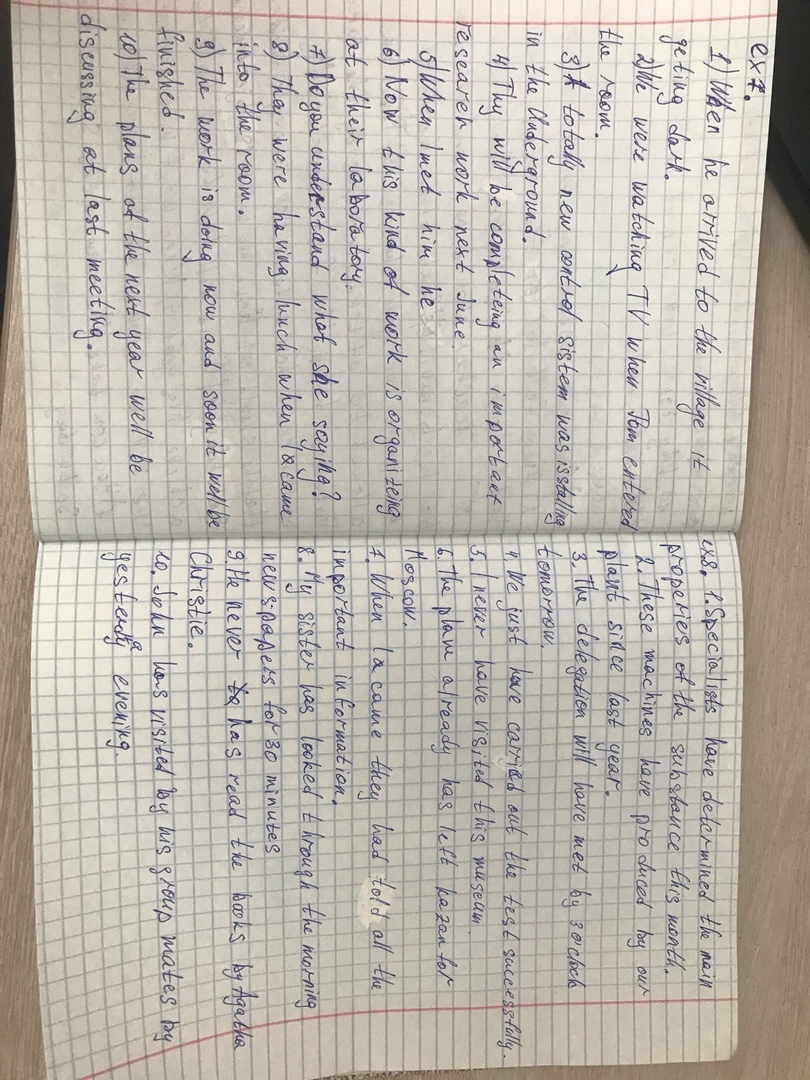 ex 7.
1) When he arrived to the village it
geting dark.
2) We were watching TV when Tom entered
the room.
3) A totally new control sistem was isstalling
in the Underground.
4) Thy will be completeing an important
researer work next June.
5) When I met him he
6) Now this kind of work is organizeing
at their laboratory.
7) Do you understand what she saying?
8) They were having lunch when I came
into the room.
9) The work is doing now and soon it well be
finished.
10) The plans of the next year well be
discussing at last meeting.
ex8. 1. Specialists have determined the main
properies of the substance this month.
2. These machines have produced by our
plant since last year.
3. The delegation will have met by 3 o'clock
tomorrow.
4 We just have carried out the test successfully.
5. I never have visited this museum.
6. The plane already has left kazan for
Moscow.
7. When I came they had told all the
important information.
8. My sister has looked through the morning
newspapers for 30 minutes
9. He never has read the books by Agatha
Christie.
10. John has visited by his group mates by
yesterday evening.